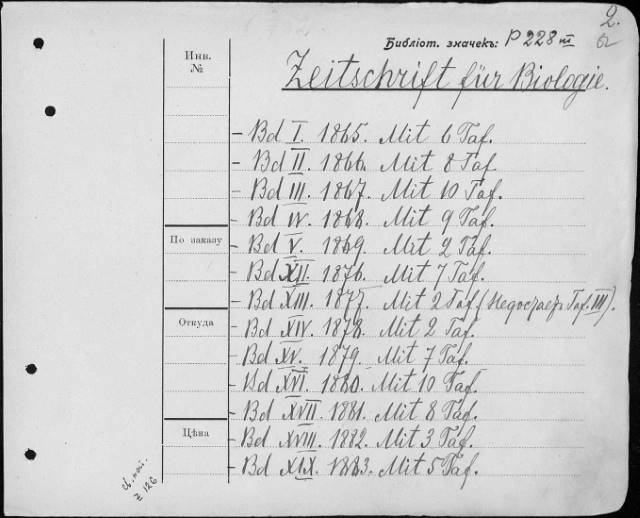 2.
Библіот. значекъ: P 228 III
Zeitschrift für Biologie.
Инв.
№
- Bd I. 1865. Mit 6 Taf.
- Bd II. 1866. Mit 8 Taf.
Bd III. 1867. Mit 10 Taf.
- Bd IV. 1868. Mit 9 Taf.
По заказу
- Bd V. 1869. Mit 2 Taf.
- Bd XII. 1876. Mit 7 Taf.
- Bd XIII. 1877. Mit 2 Taf (Недостаетъ Taf. III).
Откуда
- Bd XIV. 1878. Mit 2 Taf.
- Bd XV. 1879. Mit 7 Taf.
- Bd XVI. 1880. Mit 10 Taf.
- Bd XVII. 1881. Mit 8 Taf.
Цѣна
- Bd XVIII. 1882. Mit 3 Taf.
- Bd XIX. 1883. Mit 5 Taf.
Z 126